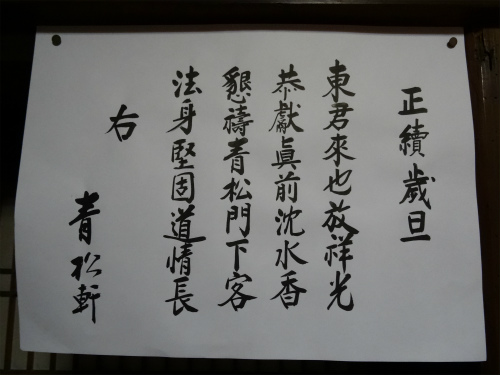 正續歲旦
東君來也放祥光
恭獻眞前沈水香
懇禱青松門下客
法身堅固道情長
右
青松軒